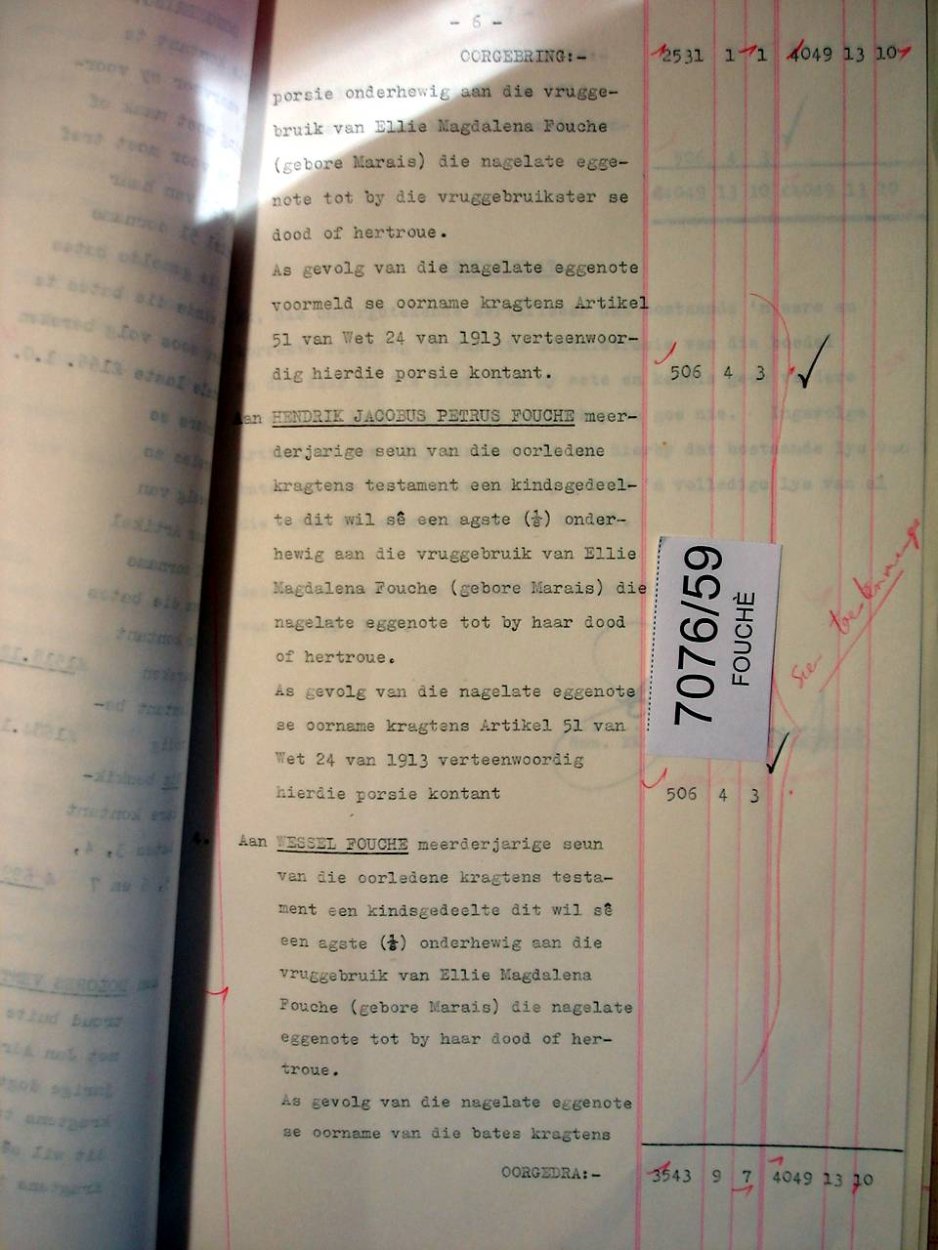 - 6 -
OORGEBRING:- 2531 1 1 4049 13 10
porsie onderhewig aan die vrugge-
bruik van Ellie Magdalena Fouche
(gebore Marais) die nagelate egge-
note tot by die vruggebruikster se
dood of hertroue.
As gevolg van die nagelate eggenote
voormeld se oorname kragtens Artikel
51 van Wet 24 van 1913 verteenwoor-
dig hierdie porsie kontant. 506 4 3
Aan HENDRIK JACOBUS PETRUS FOUCHE meer-
derjarige seun van die oorledene
kragtens testament een kindsgedeel-
te dit wil sê een agste (⅛) onder-
hewig aan die vruggebruik van Ellie
Magdalena Fouche (gebore Marais) die
nagelate eggenote tot by haar dood
of hertroue.
As gevolg van die nagelate eggenote
se oorname kragtens Artikel 51 van
Wet 24 van 1913 verteenwoordig
hierdie porsie kontant 506 4 3
7076/59
FOUCHÈ
Sien toekenning
4. Aan WESSEL FOUCHE meerderjarige seun
van die oorledene kragtens testa-
ment een kindsgedeelte dit wil sê
een agste (⅛) onderhewig aan die
vruggebruik van Ellie Magdalena
Fouche (gebore Marais) die nagelate
eggenote tot by haar dood of her-
troue.
As gevolg van die nagelate eggenote
se oorname van die bates kragtens
OORGEDRA:- 3543 9 7 4049 13 10